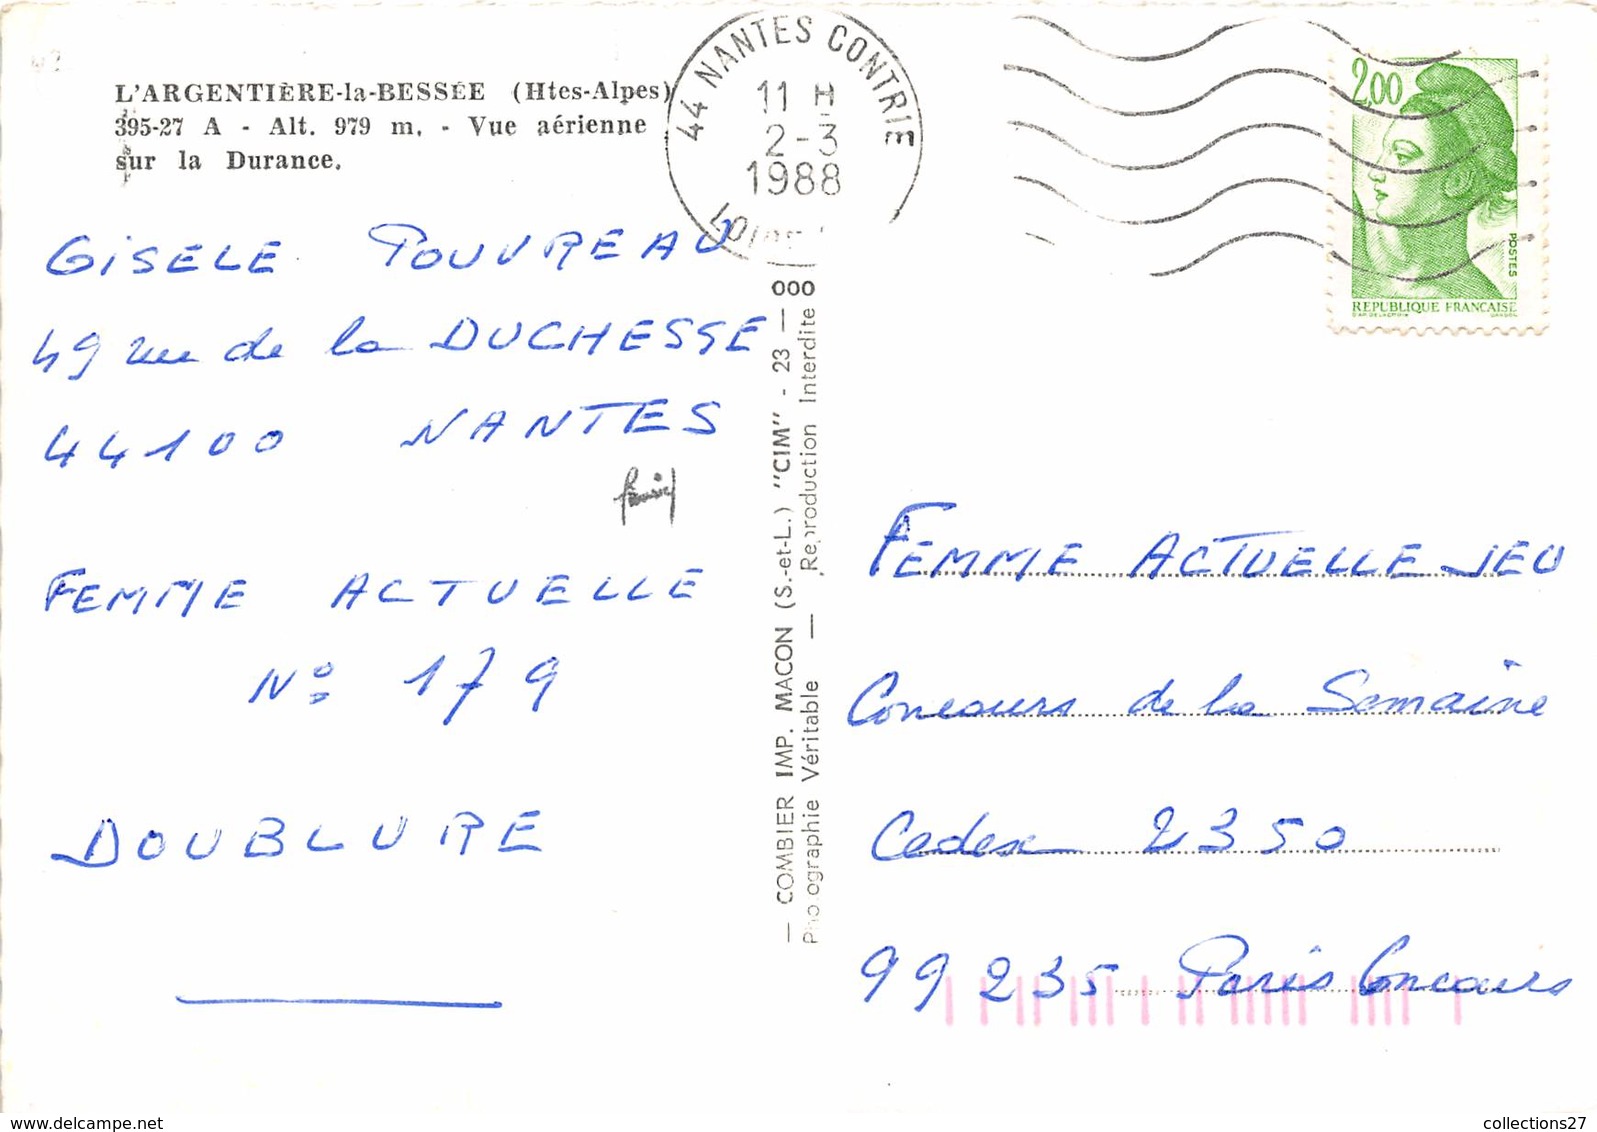 L'ARGENTIÈRE-la-BESSÉE (Htes-Alpes)
395-27 A - Alt. 979 m. - Vue aérienne
sur la Durance.
44 NANTES CONTRIE
11 H
2-3
1988
2,00
POSTES
REPUBLIQUE FRANÇAISE
GISELE POUVREAU
49 rue de la DUCHESSE
44100 NANTES
FEMME ACTUELLE
N° 179
DOUBLURE
— COMBIER IMP. MACON (S.-et-L.) "CIM" - 23 — 000
Photographie Véritable — Reproduction Interdite
FEMME ACTUELLE JEU
Concours de la Semaine
Cedex 2350
99235 Paris Concours
collections27